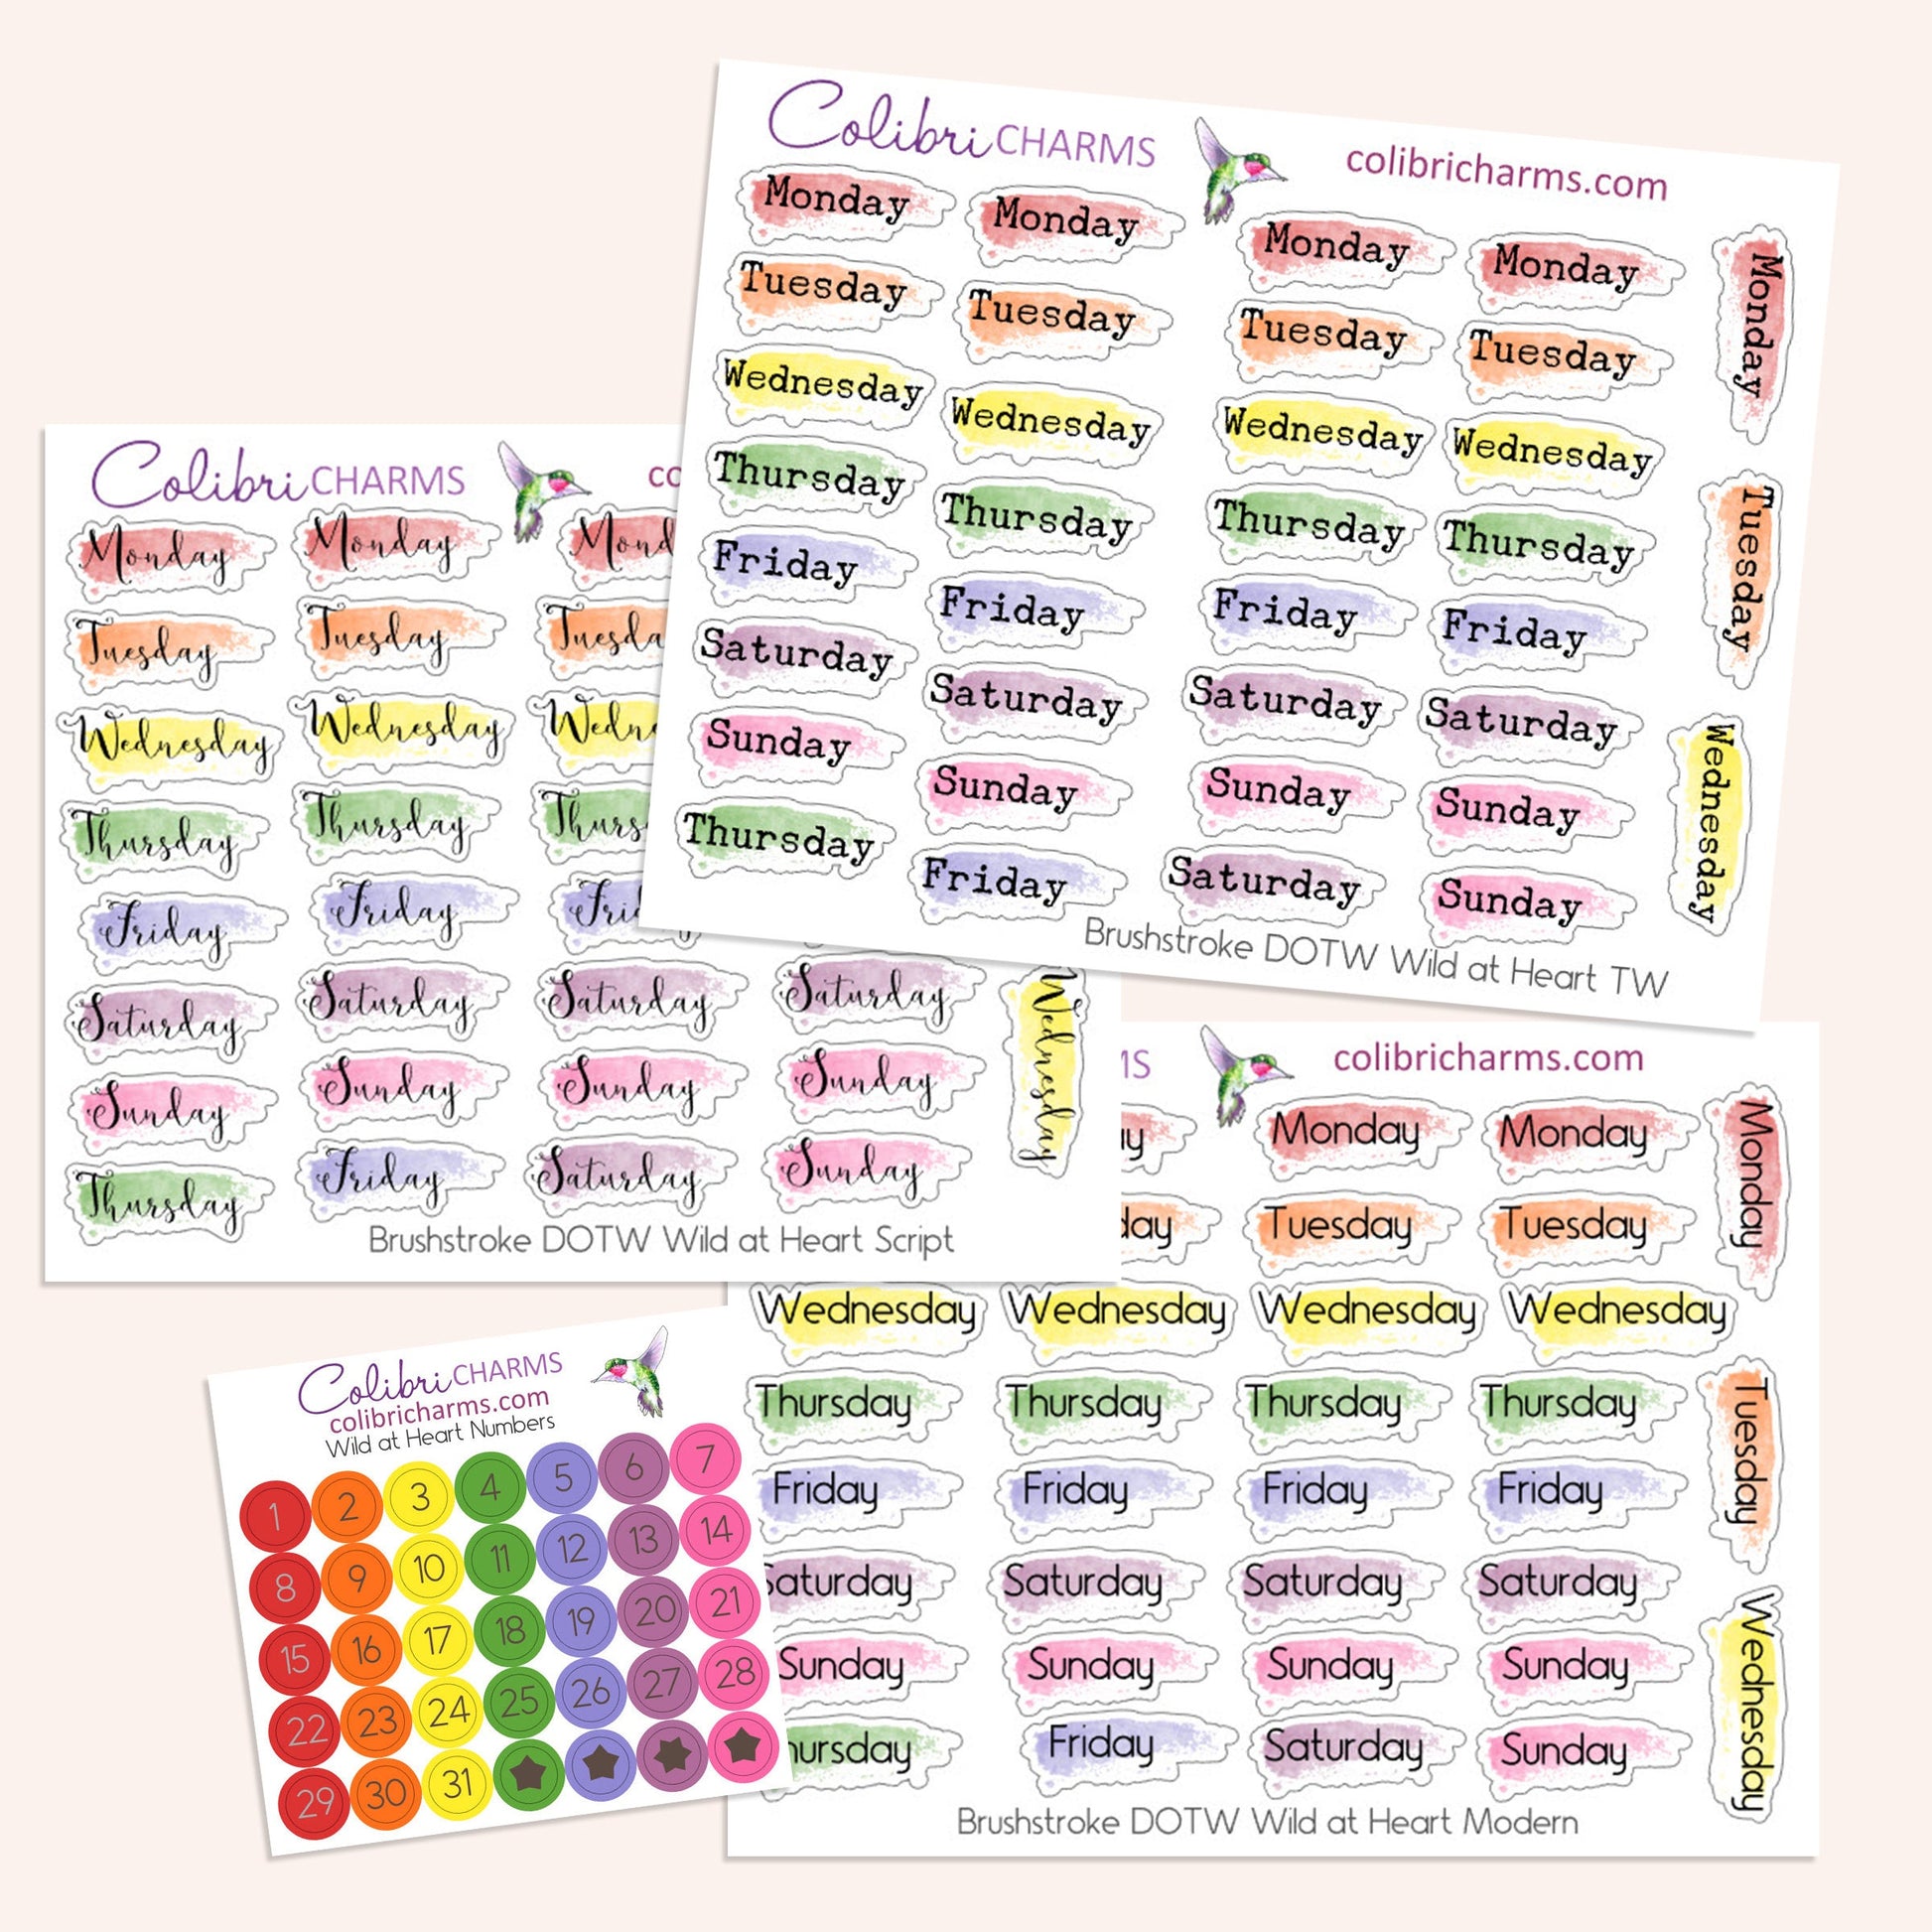 Colibri CHARMS colibricharms.com
Monday Monday Monday Monday Monday
Tuesday Tuesday Tuesday Tuesday Tuesday
Wednesday Wednesday Wednesday Wednesday Wednesday
Thursday Thursday Thursday Thursday
Friday Friday Friday Friday
Saturday Saturday Saturday Saturday
Sunday Sunday Sunday Sunday
Thursday Friday Saturday Sunday
Brushstroke DOTW Wild at Heart TW
Colibri CHARMS co
Monday Monday Mond
Tuesday Tuesday Tuesda
Wednesday Wednesday Wedne
Thursday Thursday Thurs
Friday Friday Frid
Saturday Saturday Saturday Saturday Wednesday
Sunday Sunday Sunday Sunday
Thursday Friday Saturday Sunday
Brushstroke DOTW Wild at Heart Script
MS colibricharms.com
ay Monday Monday Monday
day Tuesday Tuesday Tuesday
Wednesday Wednesday Wednesday Wednesday Wednesday
Thursday Thursday Thursday Thursday
Friday Friday Friday Friday
Saturday Saturday Saturday Saturday
Sunday Sunday Sunday Sunday
hursday Friday Saturday Sunday
Brushstroke DOTW Wild at Heart Modern
Colibri CHARMS
colibricharms.com
Wild at Heart Numbers
1 2 3 4 5 6 7
8 9 10 11 12 13 14
15 16 17 18 19 20 21
22 23 24 25 26 27 28
29 30 31